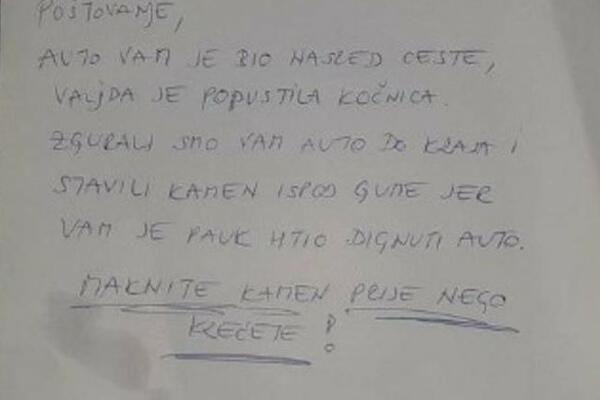 POŠTOVANJE,
AUTO VAM JE BIO NASRED CESTE,
VALJDA JE POPUSTILA KOČNICA.
ZGURALI SMO VAM AUTO DO KRAJA I
STAVILI KAMEN ISPOD GUME JER
VAM JE PAUK HTIO DIGNUTI AUTO.
MAKNITE KAMEN PRIJE NEGO
KREĆETE!